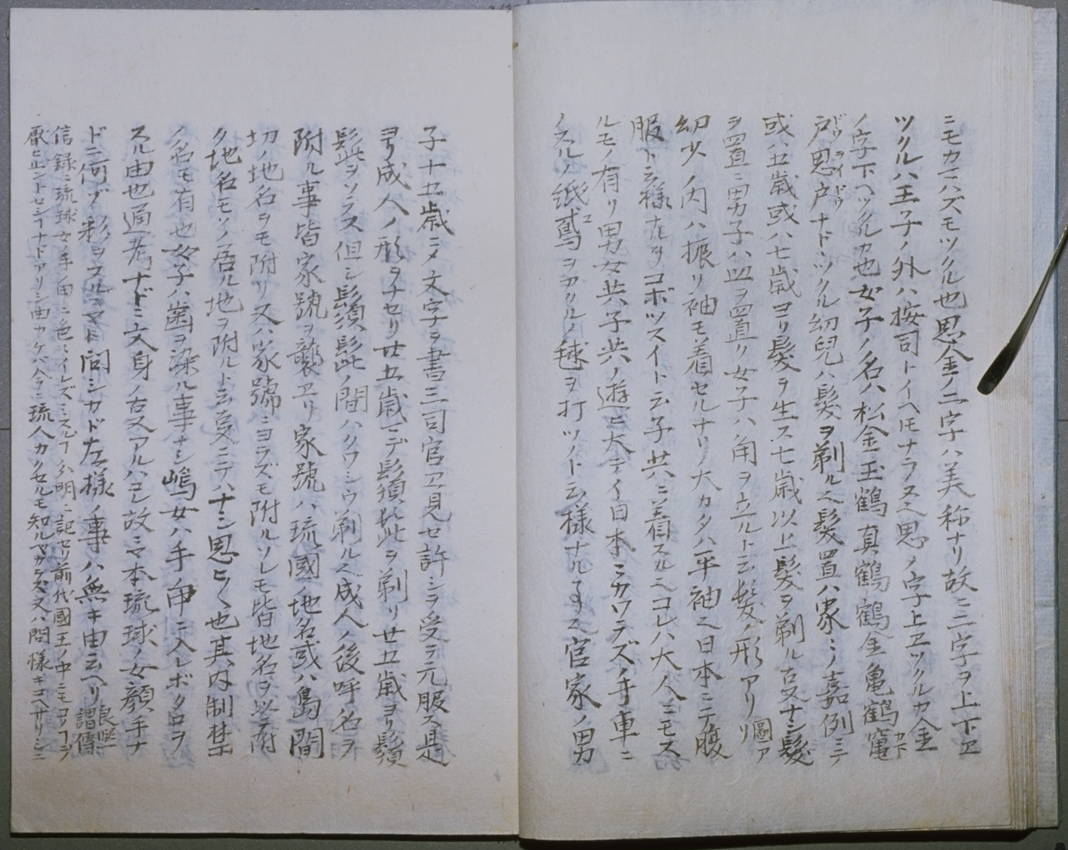 ニモカマハズモツクル也思金ノ二字ハ美称ナリ故ニ二字ヲ上下ヱ
ツクルハ王子ノ外ハ按司トイヘ𪜈ナラヌ之思ノ字上ヱツクルカ金
ノ字下ヘツクルカ也女子ノ名ハ松金玉鶴真鶴鶴金亀鶴竃
戸思戸ナドツクル幼兒ハ髪ヲ剃ル之髪置ハ家ミノ嘉例ミテ
或ハ五歳或ハ七歳ヨリ髪ヲ生ス七歳以上髪ヲ剃ル古又ナシ髪
ヲ置ニ男子ハ皿ヲ置リ女子ハ角ヲ立ルト云髪ノ形アリ圖アリ
幼少ノ内ハ振リ袖モ着セルナリ大カタハ平袖之日本ニテ腹
服ト云様ナヲコボツスイト云子共ニ着スル之コレハ大人ニモス
ルモノ有リ男女共子共ノ遊ビ大テイ日本ニカワラズノ手車ニ
ノスルノ紙鳶ヲアクルノ毬ヲ打ツノト云様ナル事之官家ノ男
子十五歳ニメ文字ヲ書三司官ヱ見セ許シヲ受テ元服ス是
ヨリ成人ノ形ヲナセリ廿五歳マデ鬚髭ヲ剃リ廿五歳ヨリ鬚
髭ヲソラス但シ鬚髭ノ間ハクワシウ剃ル之成人ノ後呼名ヲ
附ル事皆家號ヲ襲ヱリ家號ハ琉國ノ地名或ハ島間
切ノ地名ヲモ附リ又ハ家號ニヨラズモ附ルソレモ皆地名ヲ以附
ク地名モノ吾ル地ヲ附ルト云古又ニテハナシ思ヒ〱也其内制禁
ノ名モ有也女子ノ歯ヲ染ル事ナシ嶋女ハ手甲ニ入レボクロヲ
スル由也通考ナドニ文身ノ古又アルハコレ故ニヤ本琉球ノ女顔手ナ
ドニ何ゾ彩ヲスルニヤト問シカド左様ノ事ハ無キ由云ヘリ良熙謂傳
信録ニ琉球女手甲ニ色ミイレズミスルヿ分明ニ記セリ前代國王ノ中ニモコノヿヲ